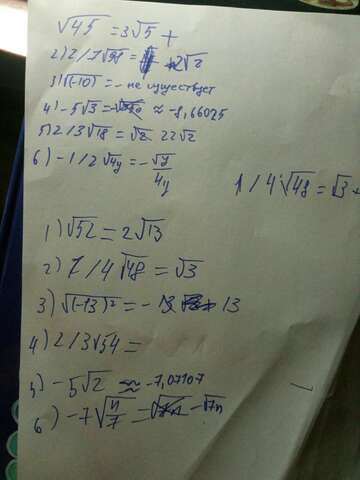 √45 = 3√5 +
2) 2/7√98 = 2√2
3) √(-10) = - не существует
4) -5√3 = ≈ -8,66025
5) 2/3√18 = √2 2√2
6) -1/2√4y = - √y/4y
1/4√48 = √3 +
1) √52 = 2√13
2) 1/4√48 = √3
3) √(-13)² = - 13 13
4) 2/3√54 =
5) -5√2 ≈ -7,07107
6) -7√n/7 = √7n -√7n